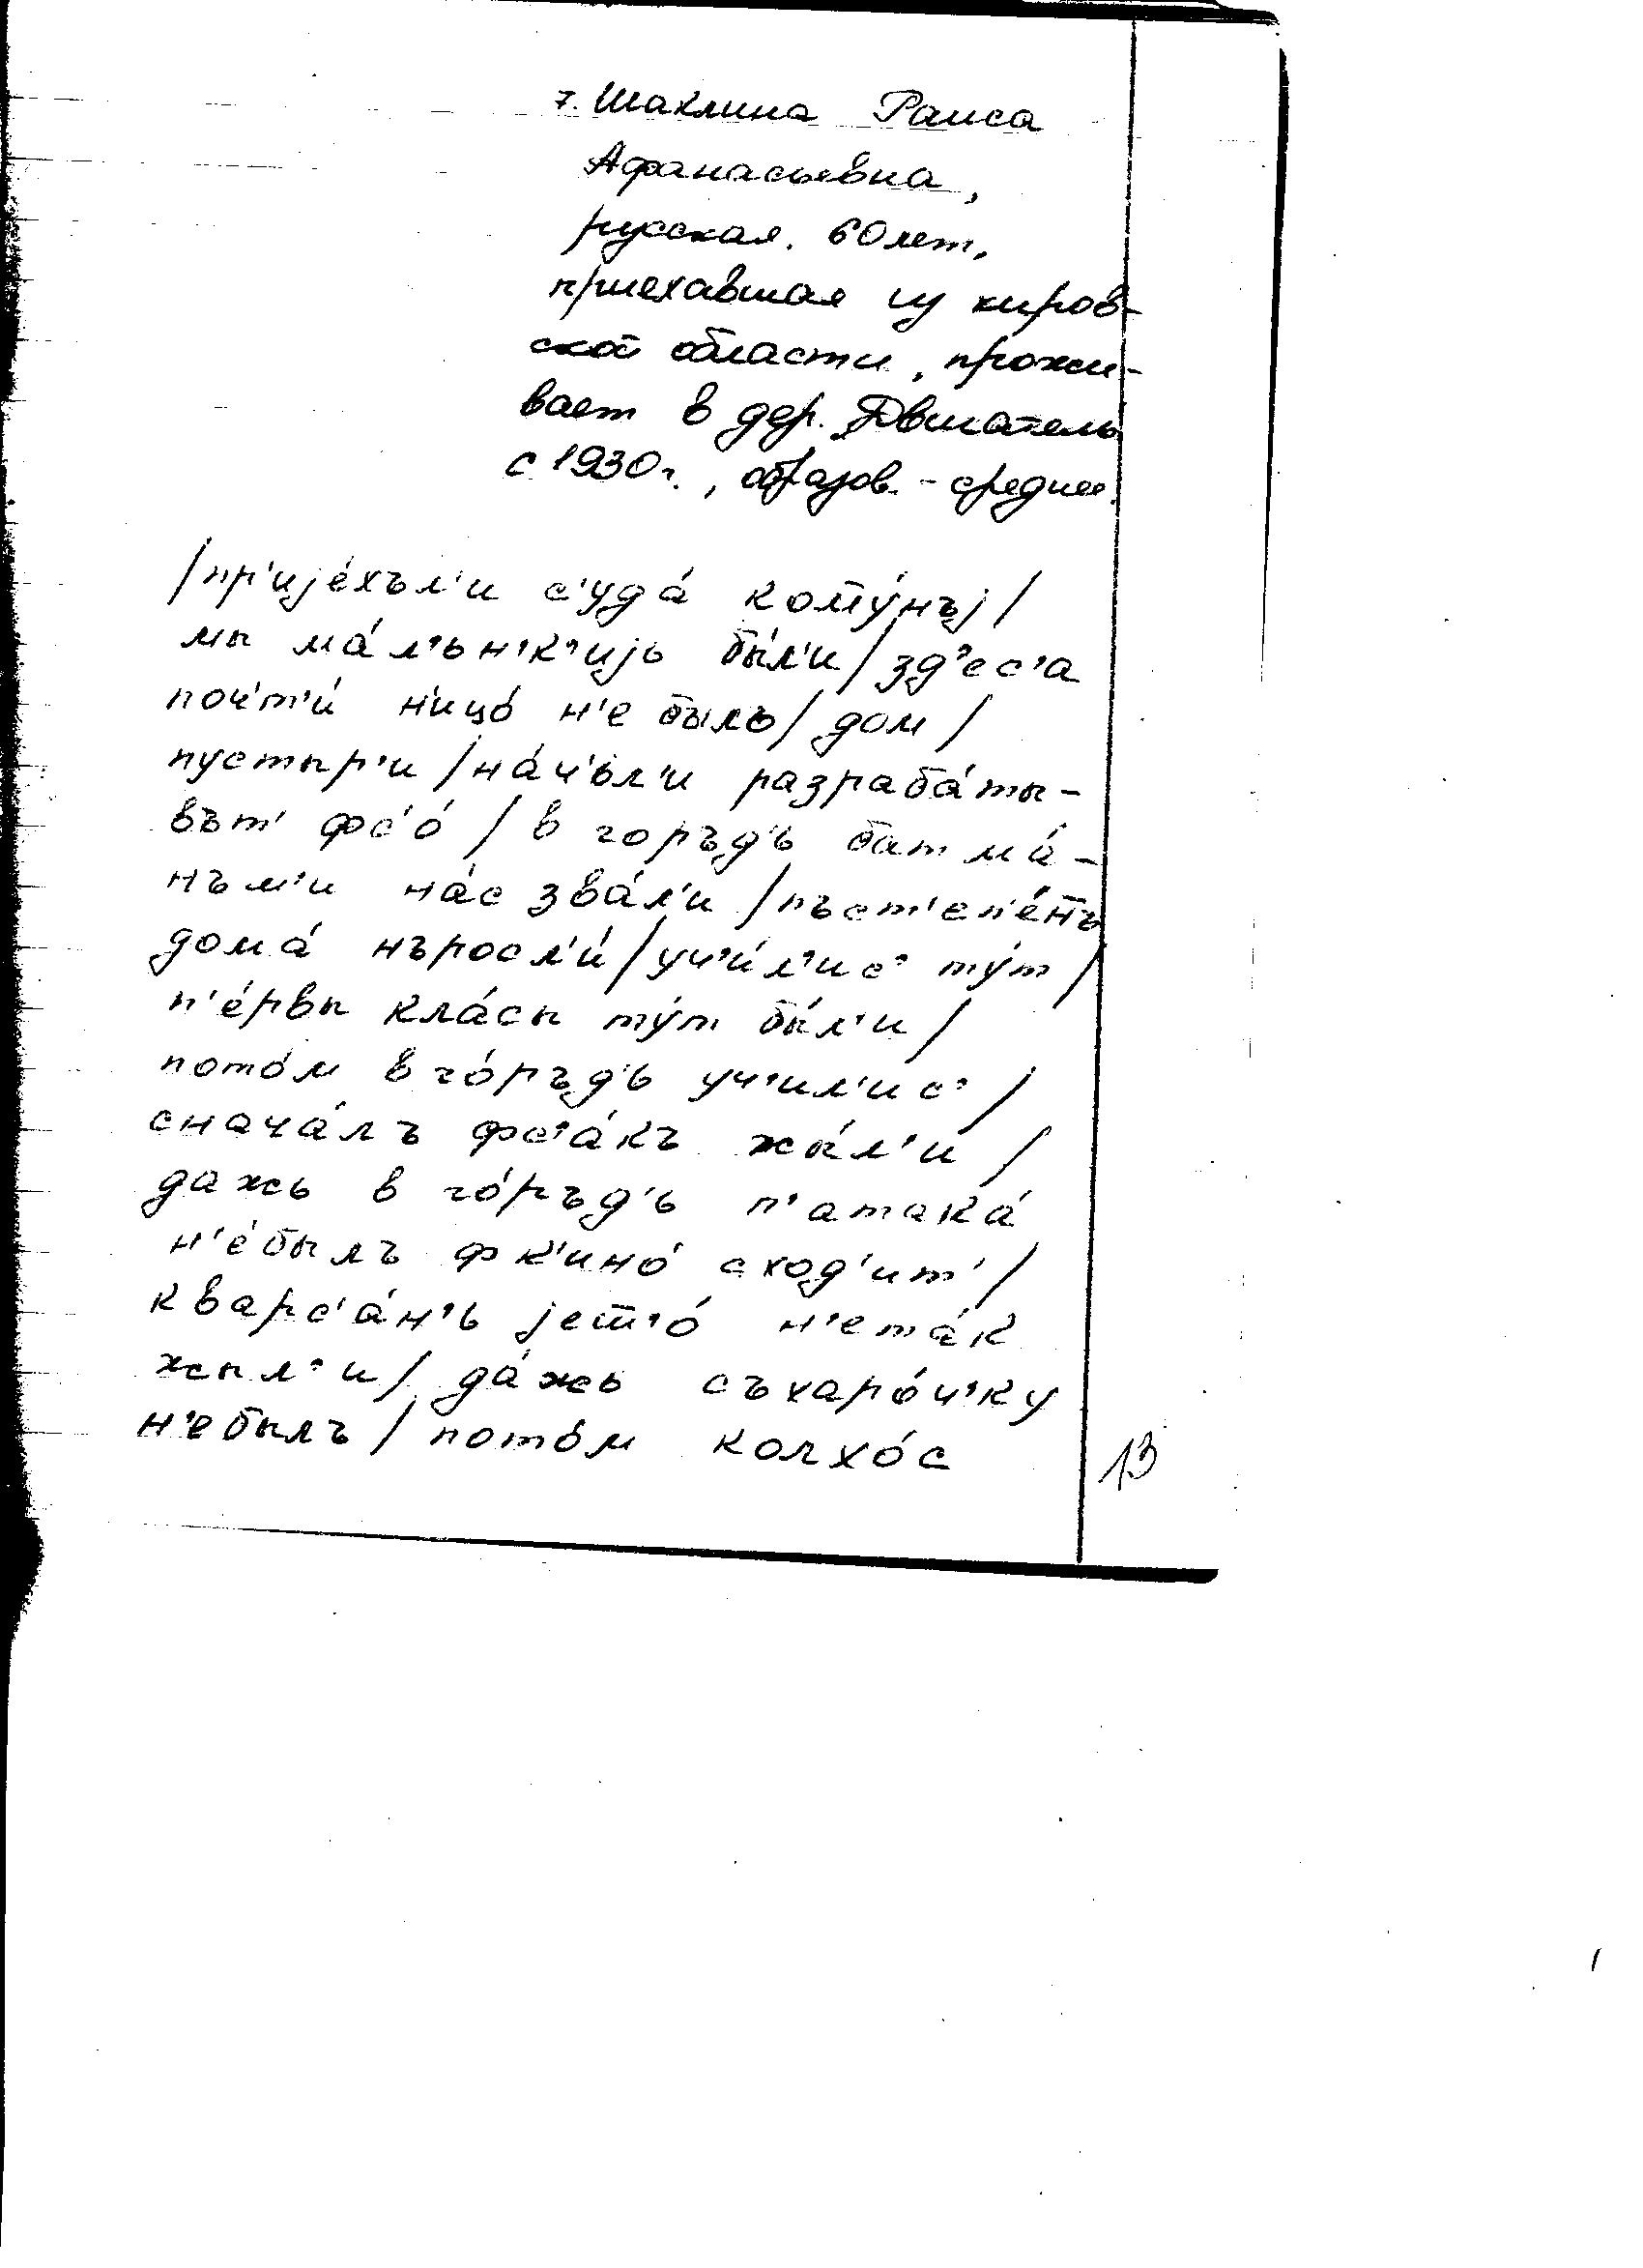 7. Шаклина Раиса
Афанасьевна,
русская. 60 лет,
приехавшая из киров-
ской области, прожи-
вает в дер. Двигатель
с 1930г., образов. - среднее.
/пр'ијéхъл'и с'удá ком̄ýнъј/
мы мáл'ьн'к'ијь бы́л'и/зд'ес'а
поч'т'и́ н'ицó н'е былъ/дом/
пустыр'и/нáч'ьл'и разрабáты-
вът' фс'ó/в горъд'ь бат мá-
нъм'и нáс звáл'и/пъст'еп'éн̄ъ
домá нъросл'и́/уч'и́л'ис' тýт/
п'éрвы клáсы тýт бы́л'и/
потóм в гóръд'ь уч'ил'ис'/
сначáлъ фс'áкъ жы́л'и/
дажь в гóръд'ь п'атакá
н'éбылъ фк'инó сход'ит'/
кварс'áн'ь јет̄'ó н'етáк
жыл'и/дáжь съхарóч'ку
н'ебылъ/потóм колхóс
13